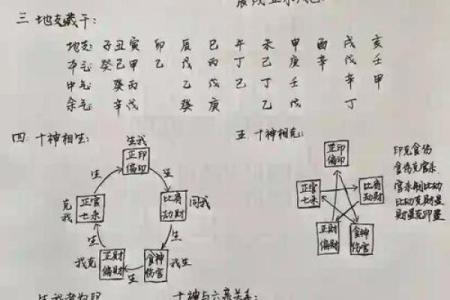 三.地支藏干:
地支: 子 丑 寅 卯 辰 巳 午 未 申 酉 戌 亥
本气: 癸 己 甲 乙 戊 丙 丁 己 庚 辛 戊 壬
中气: 癸 丙 乙 戊 己 丁 壬 辛 甲
余气: 辛 戊 癸 庚 乙 戊 丁
四.十神相生:
生我
正印
偏印
生
生
克我
正官
七杀
比肩
劫财
同我
生
生
我克
正财
偏财
生
食神
伤官
我生
五.十神相克:
正印
偏印
正官
七杀
比肩
劫财
正财
偏财
食神
伤官
印克食伤
食伤克官杀
官杀制比劫
比劫克财星
财星克印星
生我者为印
十神与六亲关系: